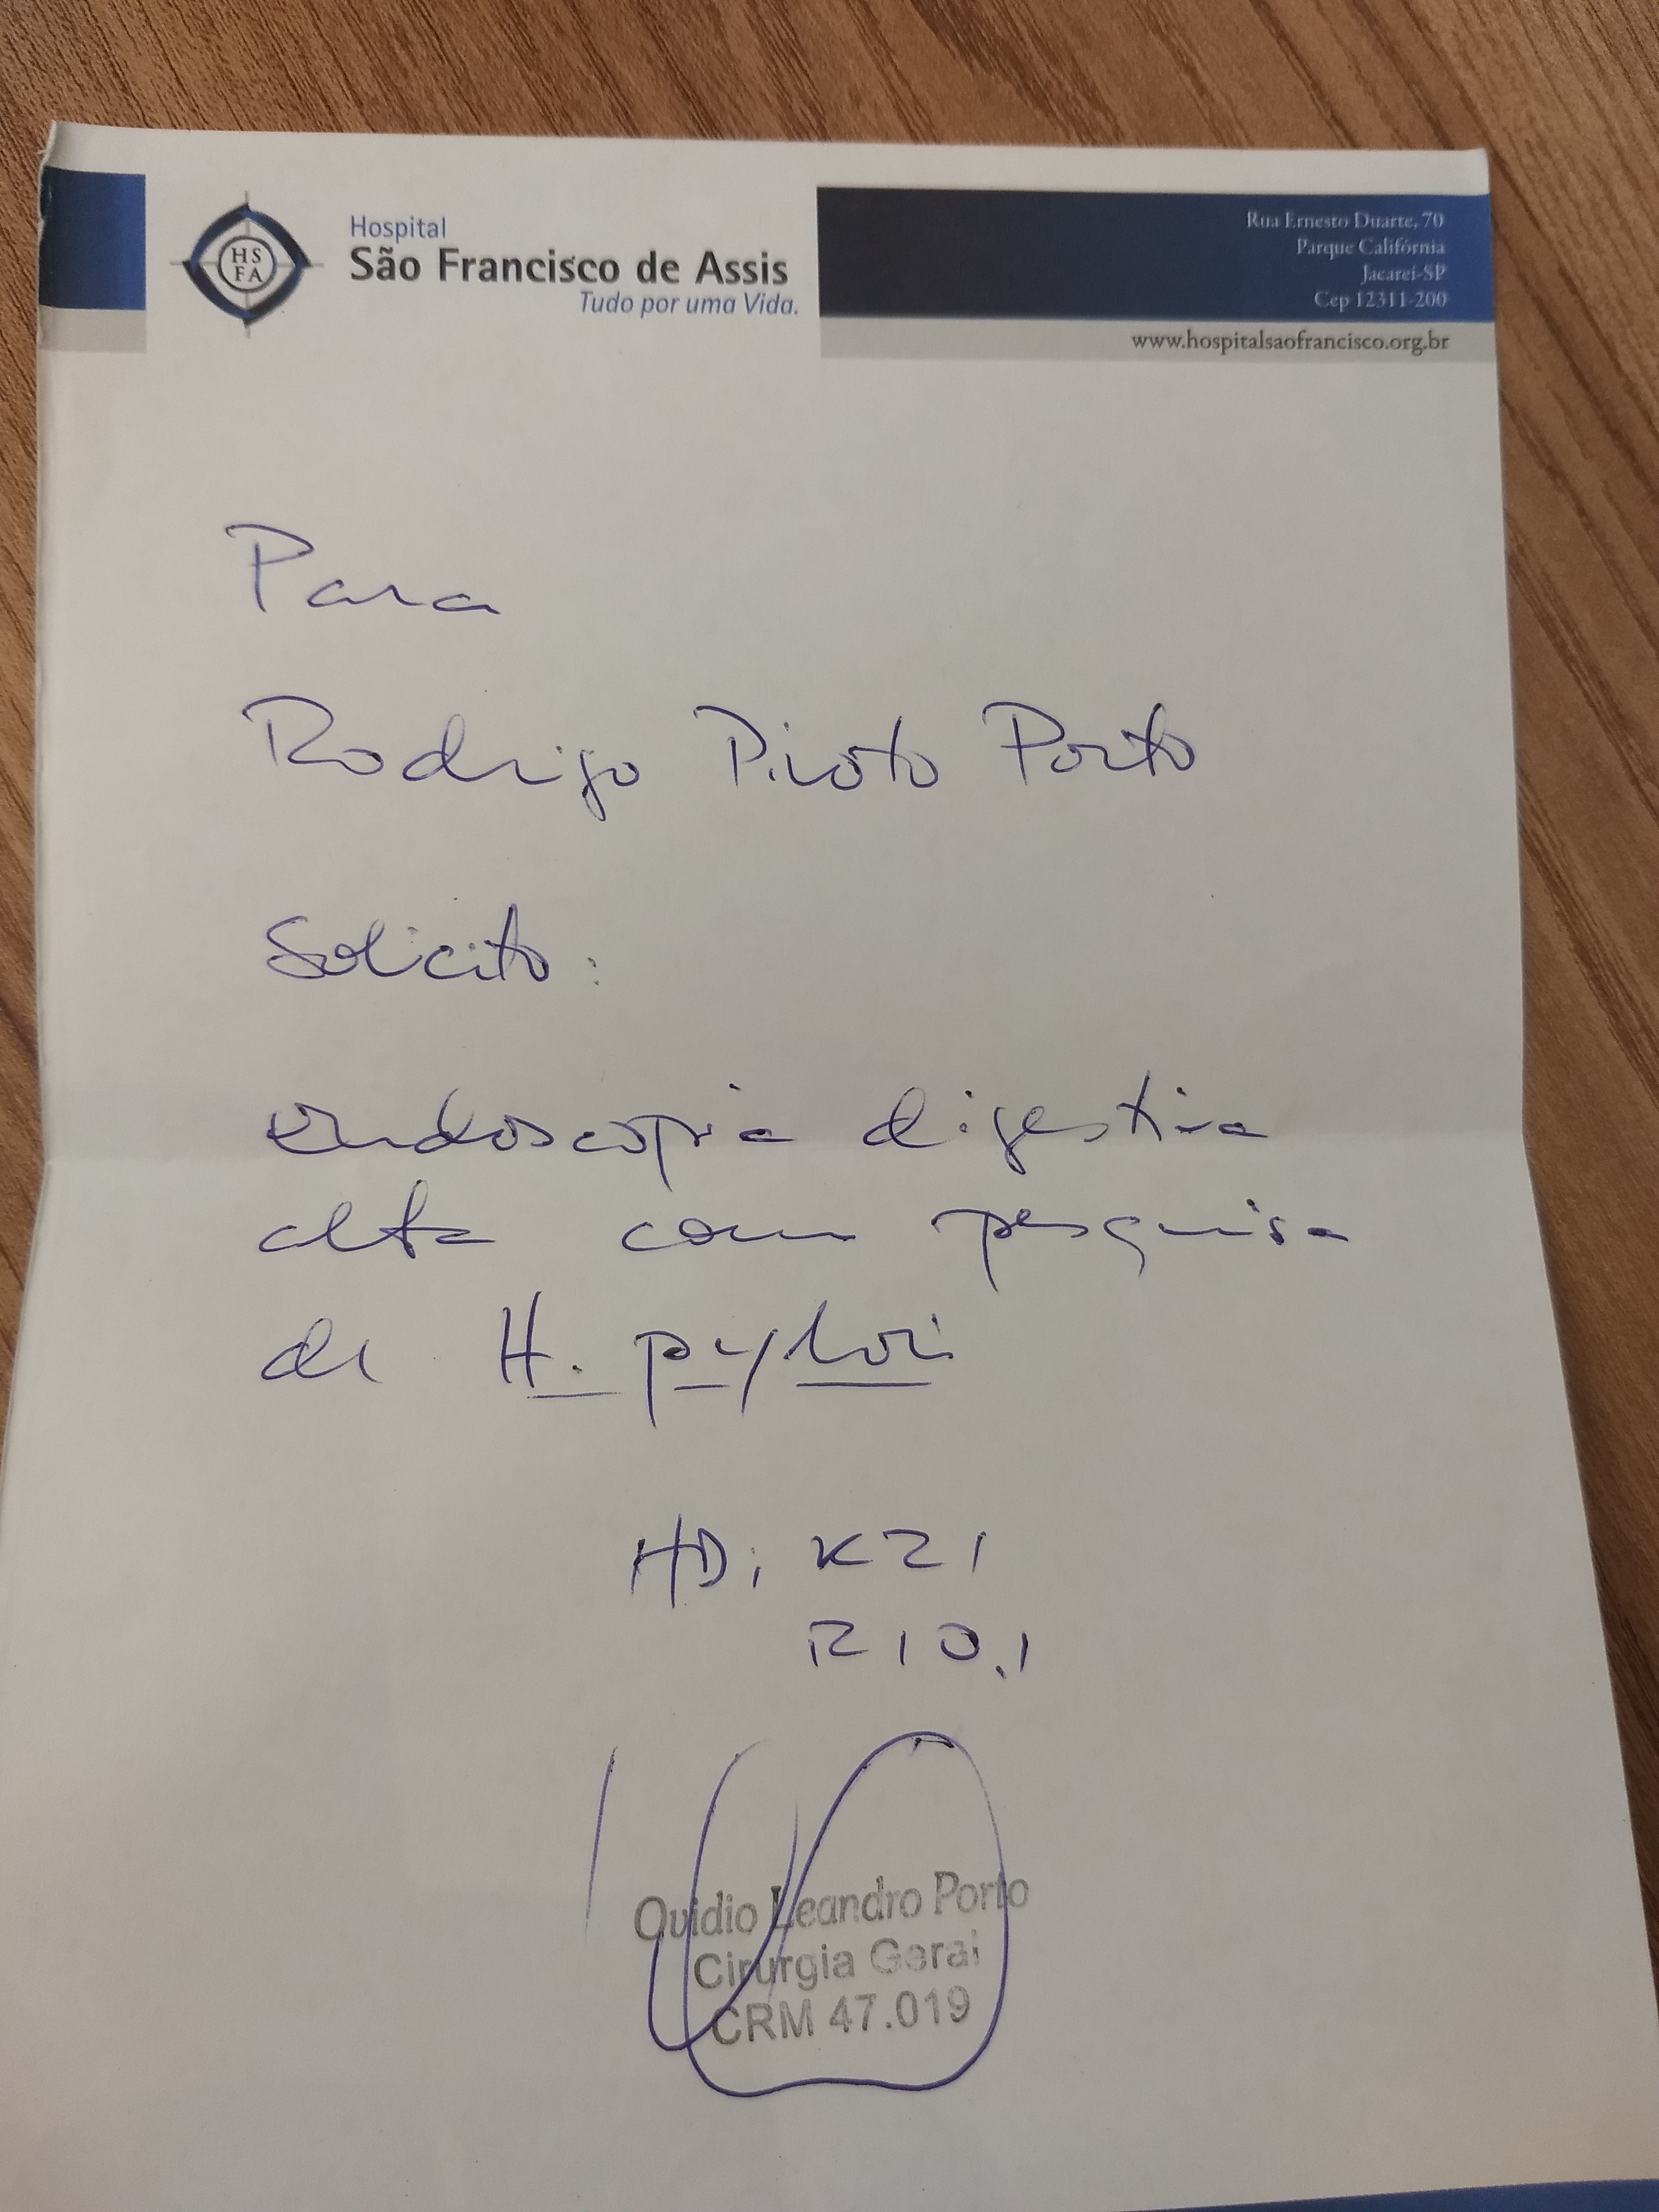 HS
FA
Hospital
São Francisco de Assis
Tudo por uma Vida.
Rua Ernesto Duarte, 70
Parque Califórnia
Jacareí-SP
Cep 12311-200
www.hospitalsaofrancisco.org.br
Para
Rodrigo Piroto Porto
Solicito:
endoscopia digestiva
alta com pesquisa
de H. pylori
HD: K21
R10.1
Ovidio Leandro Porto
Cirurgia Geral
CRM 47.019